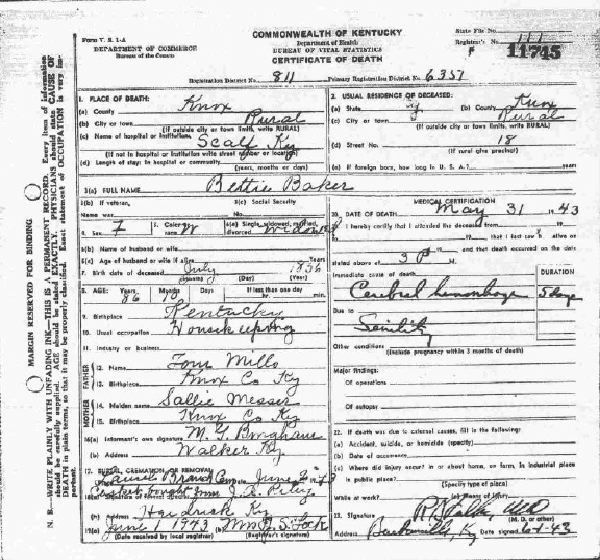 Form V. S. 1-A
DEPARTMENT OF COMMERCE
Bureau of the Census
COMMONWEALTH OF KENTUCKY
Department of Health
BUREAU OF VITAL STATISTICS
CERTIFICATE OF DEATH
State File No.
Registrar's No.
11745
Registration District No. 811 Primary Registration District No. 6351
MARGIN RESERVED FOR BINDING
N. B.—WRITE PLAINLY WITH UNFADING INK—THIS IS A PERMANENT RECORD. Every item of information
should be carefully supplied. AGE should be stated EXACTLY. PHYSICIANS should state CAUSE OF
DEATH in plain terms, so that it may be properly classified. Exact statement of OCCUPATION is very im-
portant.
1. PLACE OF DEATH:
(a) County Knox
(b) City or town Rural
(If outside city or town limits, write RURAL)
(c) Name of hospital or institution: Scalf Ky
(If not in hospital or institution write street number or location)
(d) Length of stay: in hospital or community
(years, months or days)
2. USUAL RESIDENCE OF DECEASED:
(a) State Ky (b) County Knox
(c) City or town Rural
(If outside city or town limits, write RURAL)
(d) Street No. 18
(If rural give precinct)
(e) If foreign born, how long in U. S. A.? years
3(a) FULL NAME Bettie Baker
3(b) If veteran,
Name war
3(c) Social Security
No.
4. Sex F 5. Color W 6(a) Single, widowed, married,
divorced Widowed
6(b) Name of husband or wife
6(c) Age of husband or wife if alive Years
7. Birth date of deceased July 1856
(Month) (Day) (Year)
8. AGE: Years Months Days If less than one day
86 10 hr. min.
9. Birthplace Kentucky
10. Usual occupation Housekeeping
11. Industry or business
FATHER
12. Name Tom Mills
13. Birthplace Knox Co Ky
MOTHER
14. Maiden name Sallie Messer
15. Birthplace Knox Co Ky
16(a) Informant's own signature M. G. Bingham
(b) Address Walker Ky
17. BURIAL, CREMATION, OR REMOVAL
Branch June 2
bought from J. R. Riley
Ky
19(a) June 1 1943 (b)
(Date received by local registrar) (Registrar's signature)
MEDICAL CERTIFICATION
20. DATE OF DEATH May 31 1943
21. I hereby certify that I attended the deceased from
19 to 19 that I last saw h alive on
19 and that death occurred on the date
stated above at 3 P m.
Immediate cause of death
DURATION
Cerebral hemorrhage 5 days
Due to Senility
Other conditions
(Include pregnancy within 3 months of death)
Major findings:
Of operations
Of autopsy
22. If death was due to external causes, fill in the following:
(a) Accident, suicide, or homicide (specify)
(b) Date of occurrence
(c) Where did injury occur? in or about home, on farm, in industrial place
in public place?
(Specify type of place)
While at work? (e) Means of injury
23. Signature MD
(M. D. or other)
Address Barbourville, Ky Date signed 6-1-43